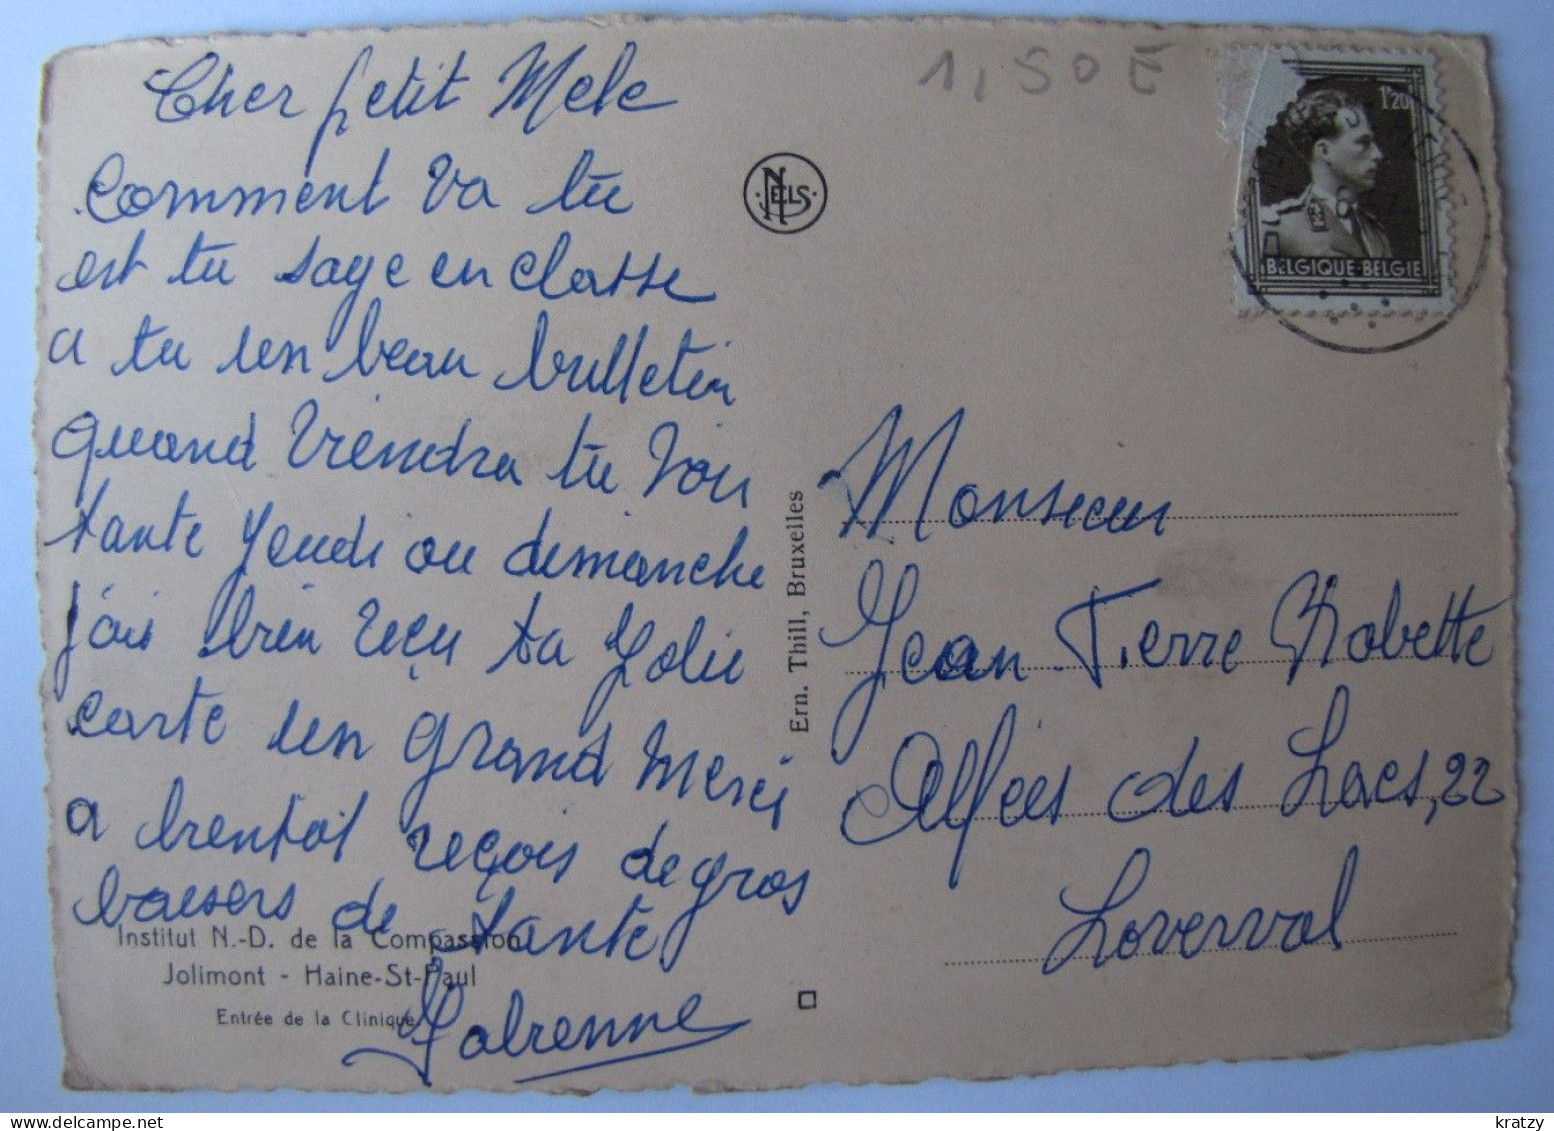 Cher petit Mele
Comment va tu
est tu sage en classe
a tu un beau bulletin
quand viendra tu voir
tante yeudi ou dimanche
j'ais bien reçu ta jolie
carte un grand merci
a bientot reçois de gros
baisers de tante
Institut N.-D. de la Compassion
Jolimont - Haine-St-Paul
Entrée de la Clinique
NELS
Ern. Thill, Bruxelles
1,50 E
1F20
BELGIQUE-BELGIE
Monsieur
Jean Pierre Nobette
Allées des Lacs, 22
Loverval
kratzy